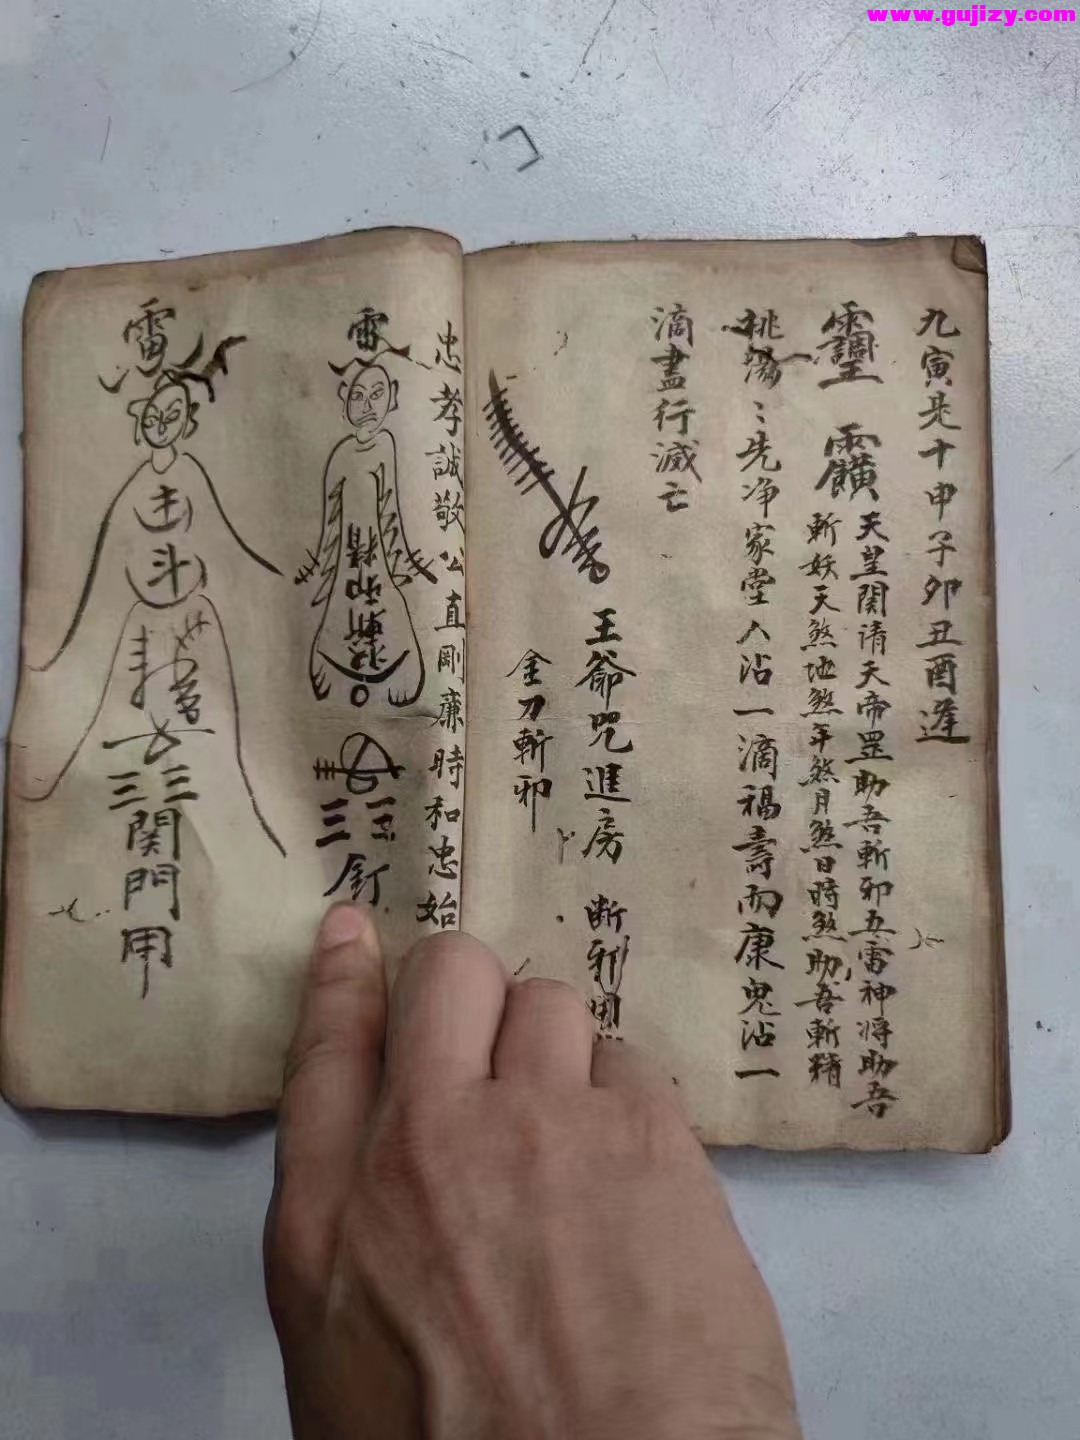 www.gujizy.com
九寅是十申子卯丑酉逢
天皇関請天帝罡助吾斬邪五雷神将助吾
斬妖天煞地煞年煞月煞日時煞助吾斬精
桃湯〻先净家堂人沾一滴福壽而康鬼沾一
滴盡行滅亡
王爺咒進房 断邪用
金刀斬邪
忠孝誠敬公直剛廉時和忠始
斬邪精
三三
釘
雷
斗
三三
関門甲